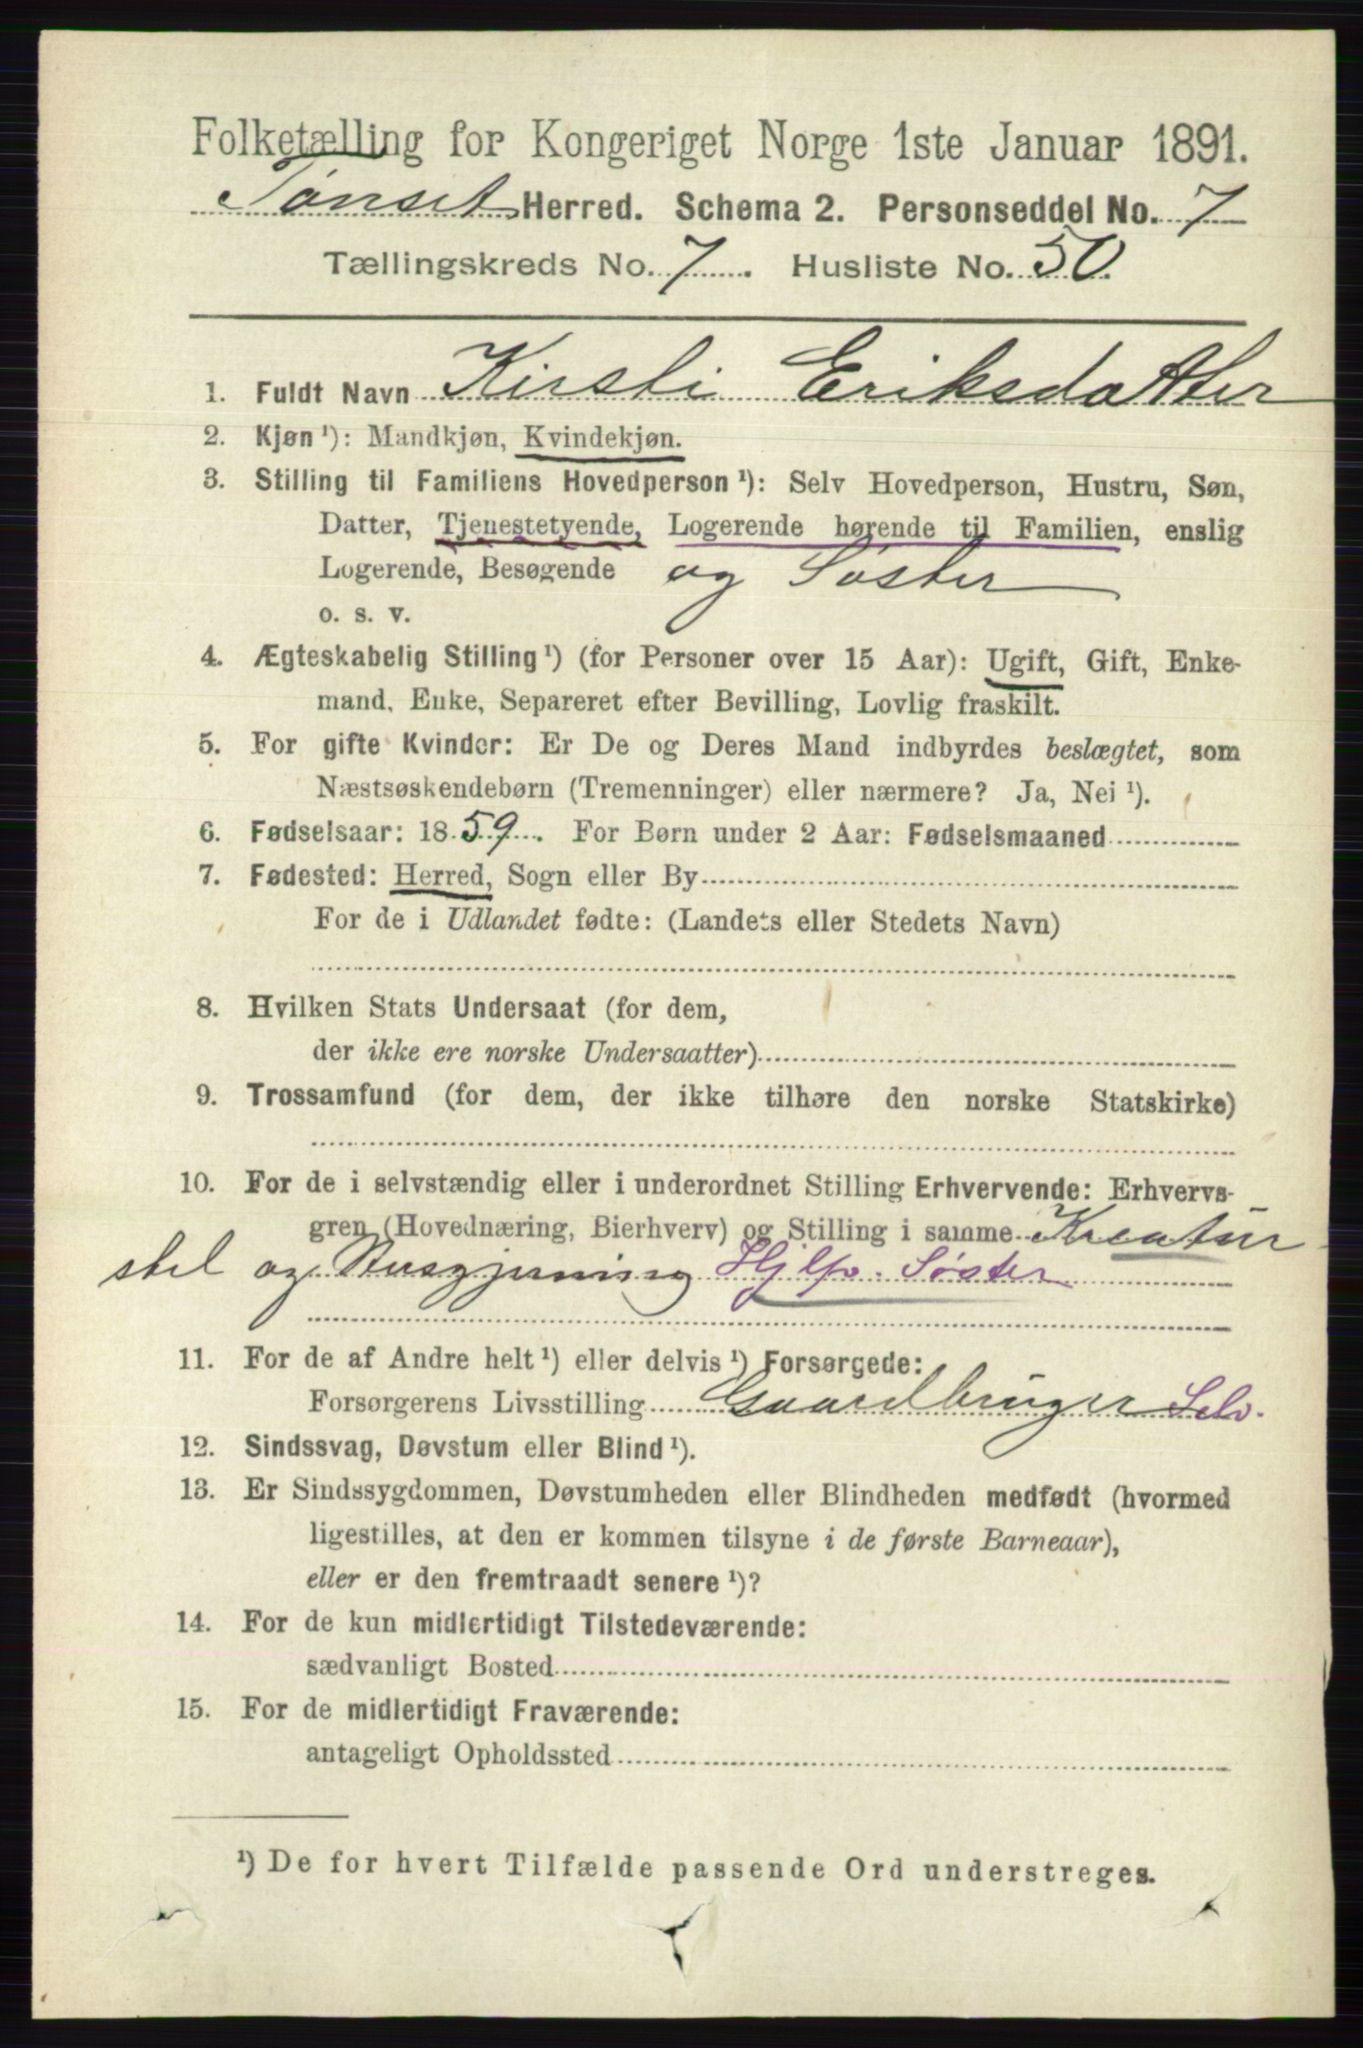 Folketælling for Kongeriget Norge 1ste Januar 1891.
Tønset Herred. Schema 2. Personseddel No. 7
Tællingskreds No. 7. Husliste No. 50.
1. Fuldt Navn Kirsti Eriksdatter
2. Kjøn¹): Mandkjøn, Kvindekjøn.
3. Stilling til Familiens Hovedperson¹): Selv Hovedperson, Hustru, Søn,
Datter, Tjenestetyende, Logerende hørende til Familien, enslig
Logerende, Besøgende og Søster
o. s. v.
4. Ægteskabelig Stilling¹) (for Personer over 15 Aar): Ugift, Gift, Enke-
mand, Enke, Separeret efter Bevilling, Lovlig fraskilt.
5. For gifte Kvinder: Er De og Deres Mand indbyrdes beslægtet, som
Næstsøskendebørn (Tremenninger) eller nærmere? Ja, Nei¹).
6. Fødselsaar: 1859. For Børn under 2 Aar: Fødselsmaaned
7. Fødested: Herred, Sogn eller By
For de i Udlandet fødte: (Landets eller Stedets Navn)
8. Hvilken Stats Undersaat (for dem,
der ikke ere norske Undersaatter)
9. Trossamfund (for dem, der ikke tilhøre den norske Statskirke)
10. For de i selvstændig eller i underordnet Stilling Erhvervende: Erhvervs-
gren (Hovednæring, Bierhverv) og Stilling i samme Kreatur
stel og Husgjerning Hjlp. Søster
11. For de af Andre helt¹) eller delvis¹) Forsørgede:
Forsørgerens Livsstilling Gaardbruger Selv.
12. Sindssvag, Døvstum eller Blind¹).
13. Er Sindssygdommen, Døvstumheden eller Blindheden medfødt (hvormed
ligestilles, at den er kommen tilsyne i de første Barneaar),
eller er den fremtraadt senere¹)?
14. For de kun midlertidigt Tilstedeværende:
sædvanligt Bosted
15. For de midlertidigt Fraværende:
antageligt Opholdssted
¹) De for hvert Tilfælde passende Ord understreges.